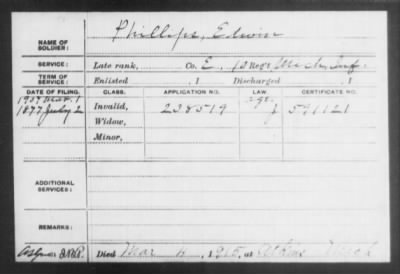 NAME OF SOLDIER: Phillips, Edwin
SERVICE: Late rank, Co. E, 10 Reg't Mich. Inf.
TERM OF SERVICE: Enlisted , 1 Discharged , 1
DATE OF FILING. CLASS. APPLICATION NO. LAW. CERTIFICATE NO.
1907 Mar. 1 age.
1877 July 2 Invalid, 238519 591121
Widow,
Minor,
ADDITIONAL SERVICES:
REMARKS:
Died Mar 4, 1915, at Mich